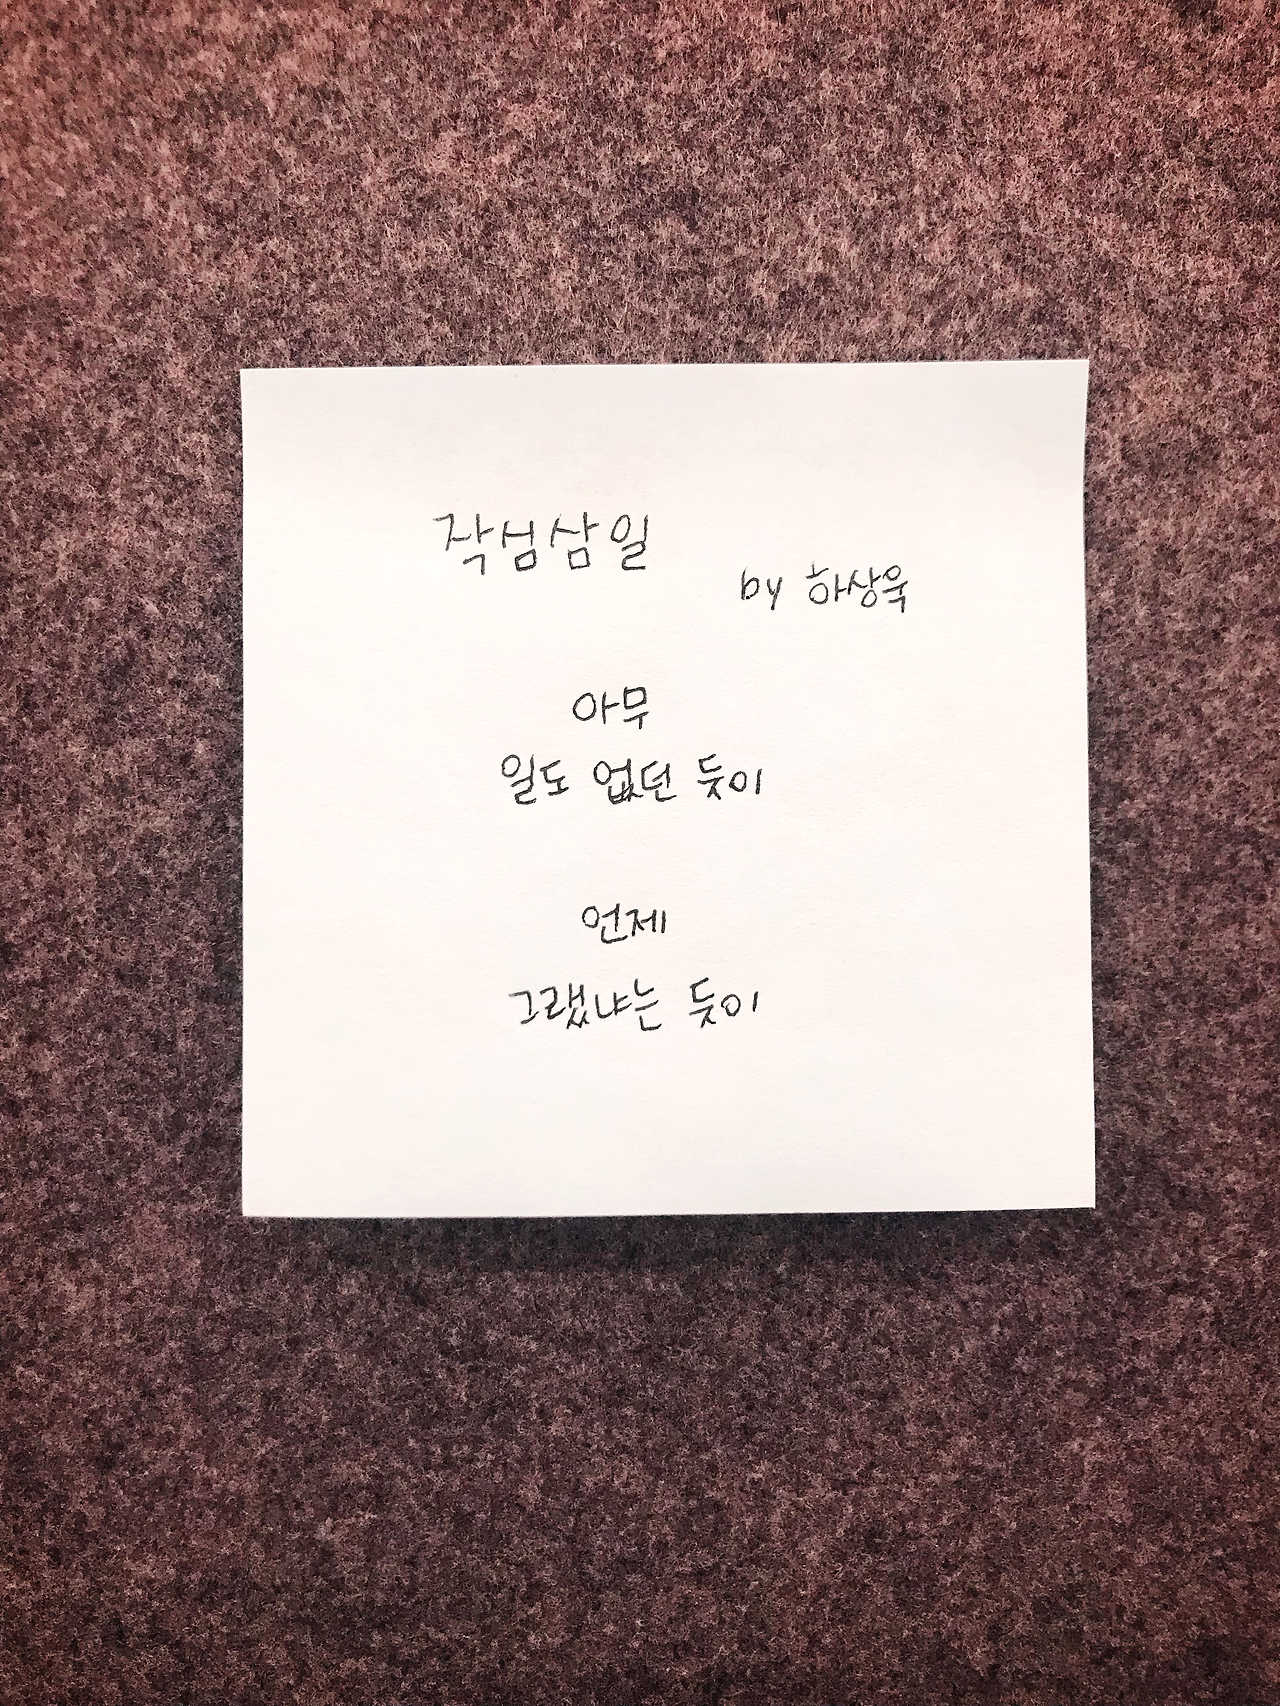 작심삼일
by 하상욱
아무
일도 없던 듯이
언제
그랬냐는 듯이